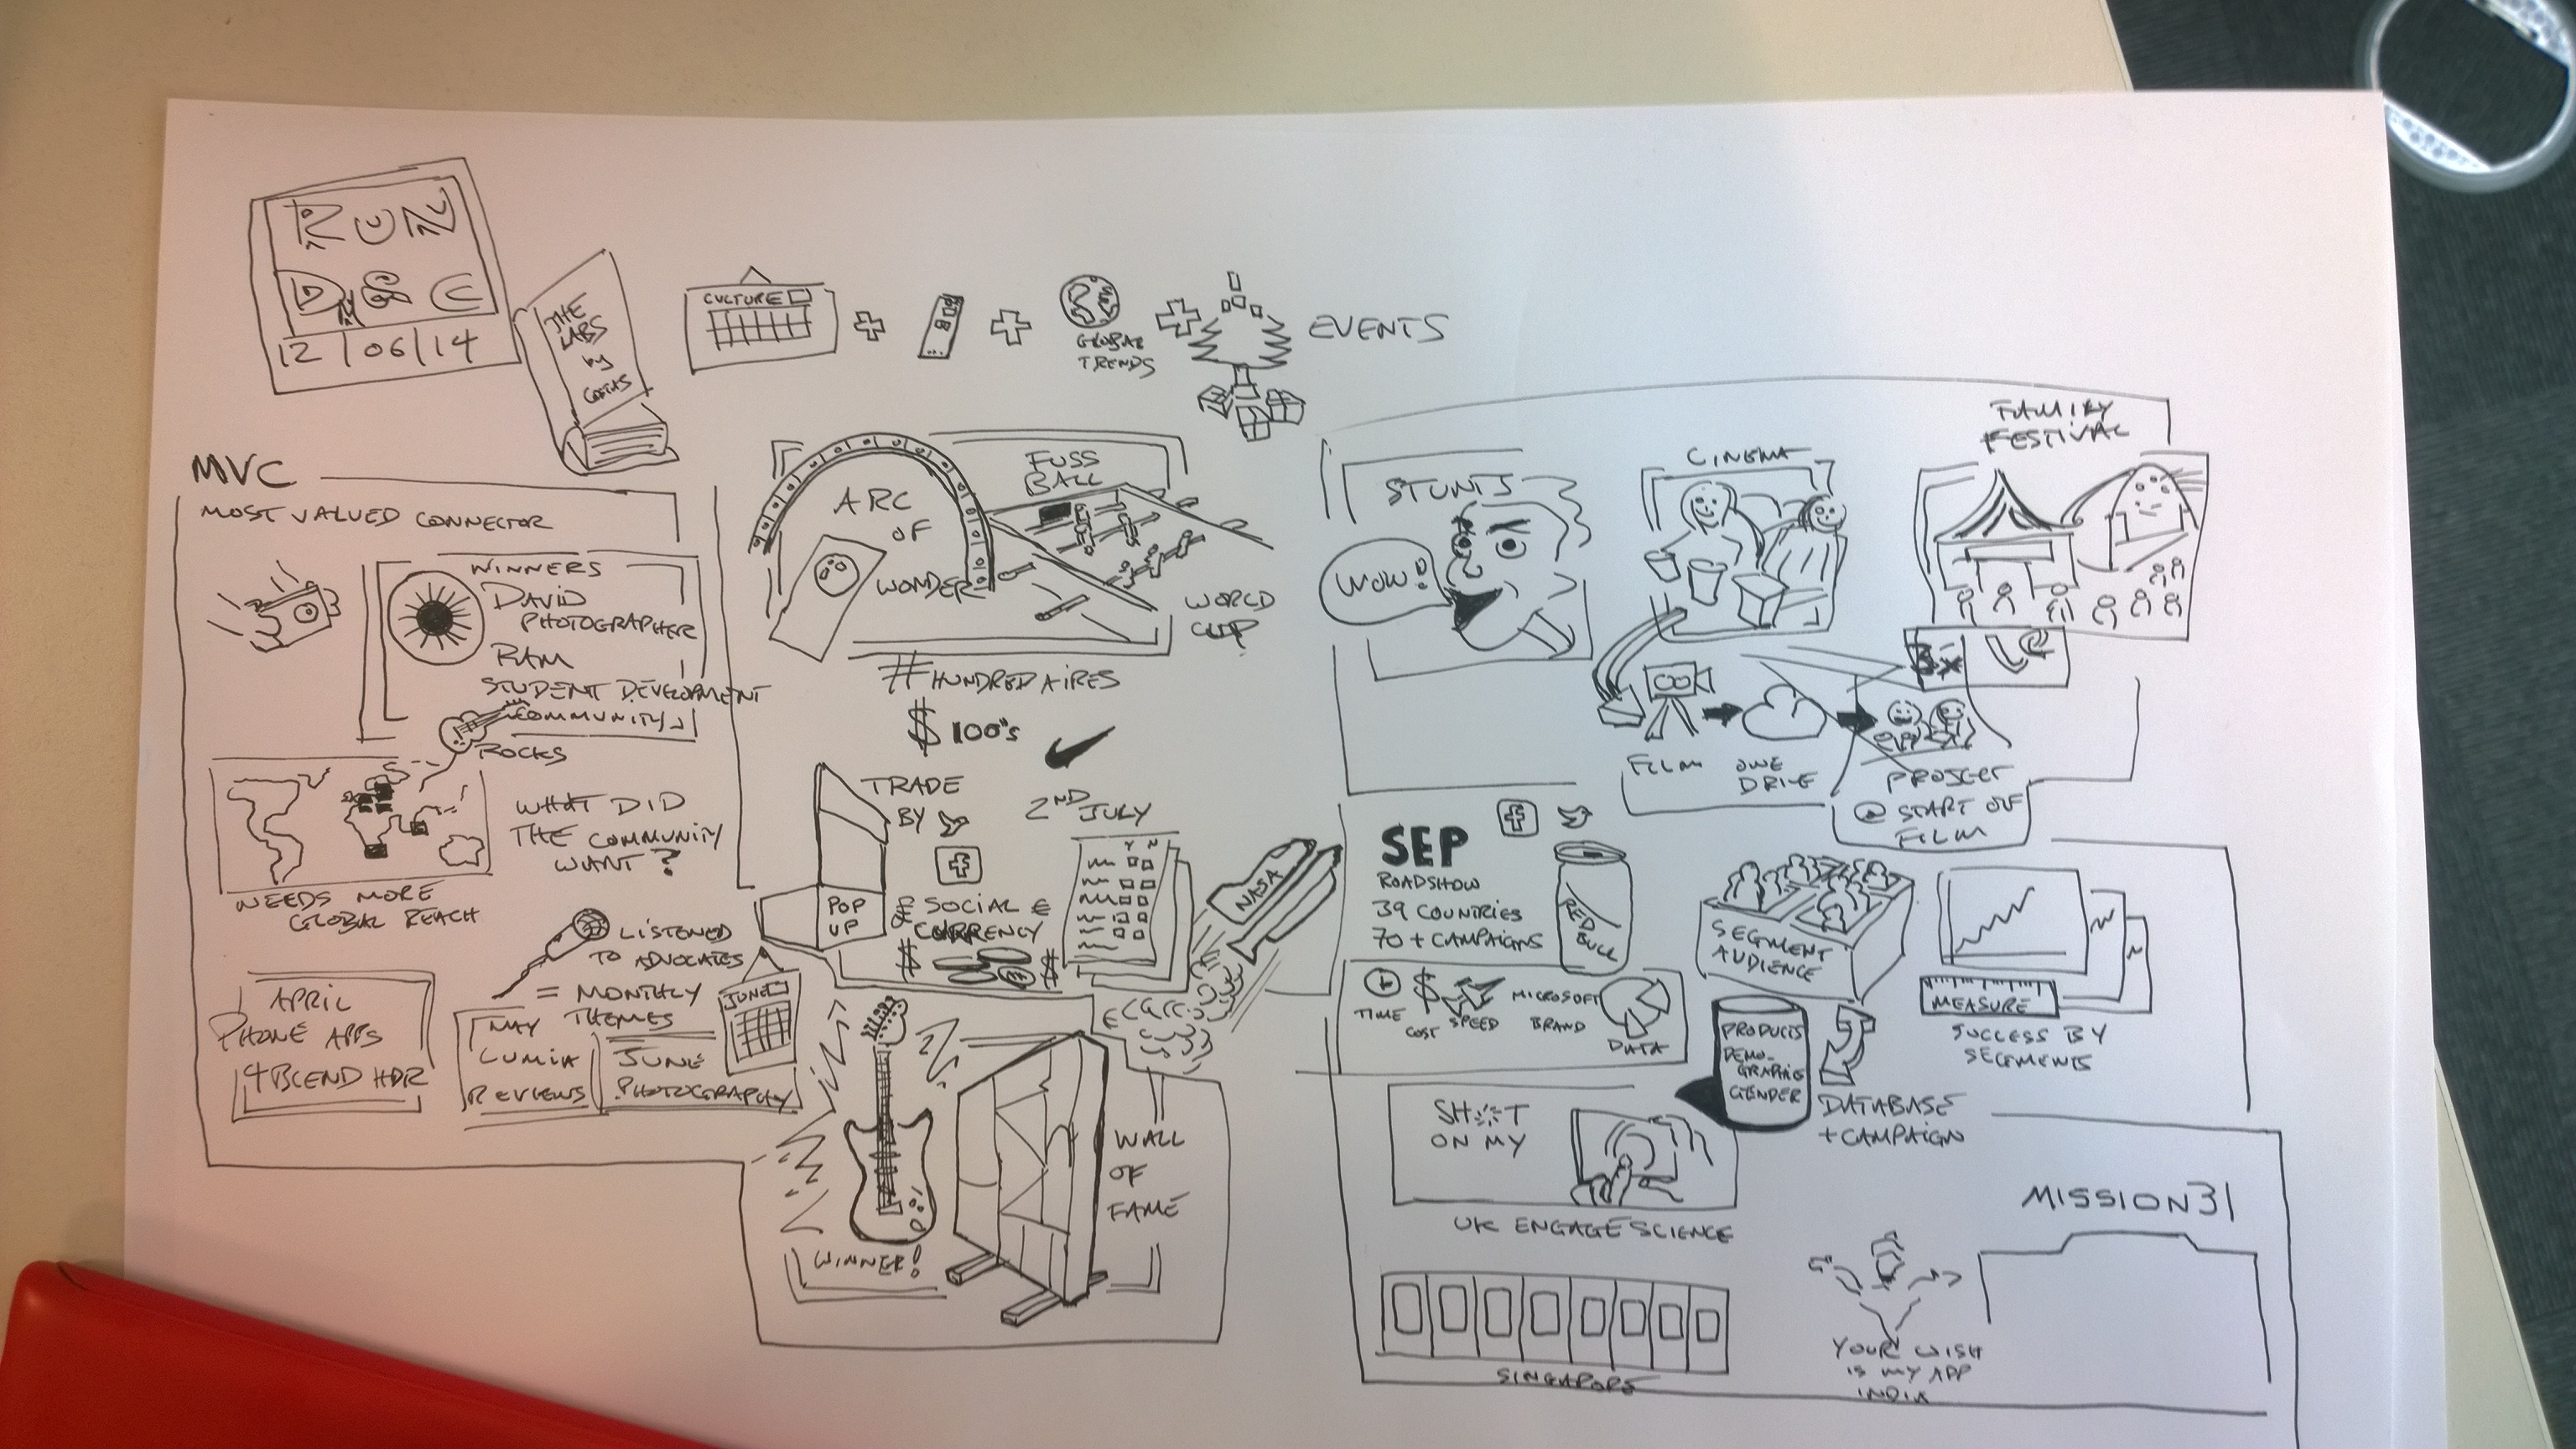 RUN
DMC
12/06/14
THE
LABS
by
CULTURE
GLOBAL
TRENDS
EVENTS
MVC
MOST VALUED CONNECTOR
WINNERS
DAVID
PHOTOGRAPHER
RAM
STUDENT DEVELOPMENT
COMMUNITY
ROCKS
NEEDS MORE
GLOBAL REACH
WHAT DID
THE COMMUNITY
WANT?
LISTENED
TO ADVOCATES
= MONTHLY
THEMES
APRIL
PHONE APPS
4BLEND HDR
MAY
LUMIA
REVIEWS
JUNE
PHOTOGRAPHY
JUNE
ARC
OF
WONDER
FUSS
BALL
WORLD
CUP
#HUNDREDAIRES
$ 100's
TRADE
BY
2ND JULY
Y N
POP
UP
SOCIAL €
CURRENCY
$ $
NASA
WINNER!
WALL
OF
FAME
STUNTS
WOW!
CINEMA
FAMILY
FESTIVAL
FILM
ONE
DRIVE
PROJECT
@ START OF
FILM
SEP
ROADSHOW
39 COUNTRIES
70 + CAMPAIGNS
RED
BULL
TIME
$
COST
SPEED
MICROSOFT
BRAND
DATA
SEGMENT
AUDIENCE
MEASURE
SUCCESS BY
SEGMENTS
PRODUCTS
DEMO-
GRAPHIC
GENDER
DATABASE
+ CAMPAIGN
SH T
ON MY
UK ENGAGE SCIENCE
SINGAPORE
MISSION31
YOUR WISH
IS MY APP
INDIA